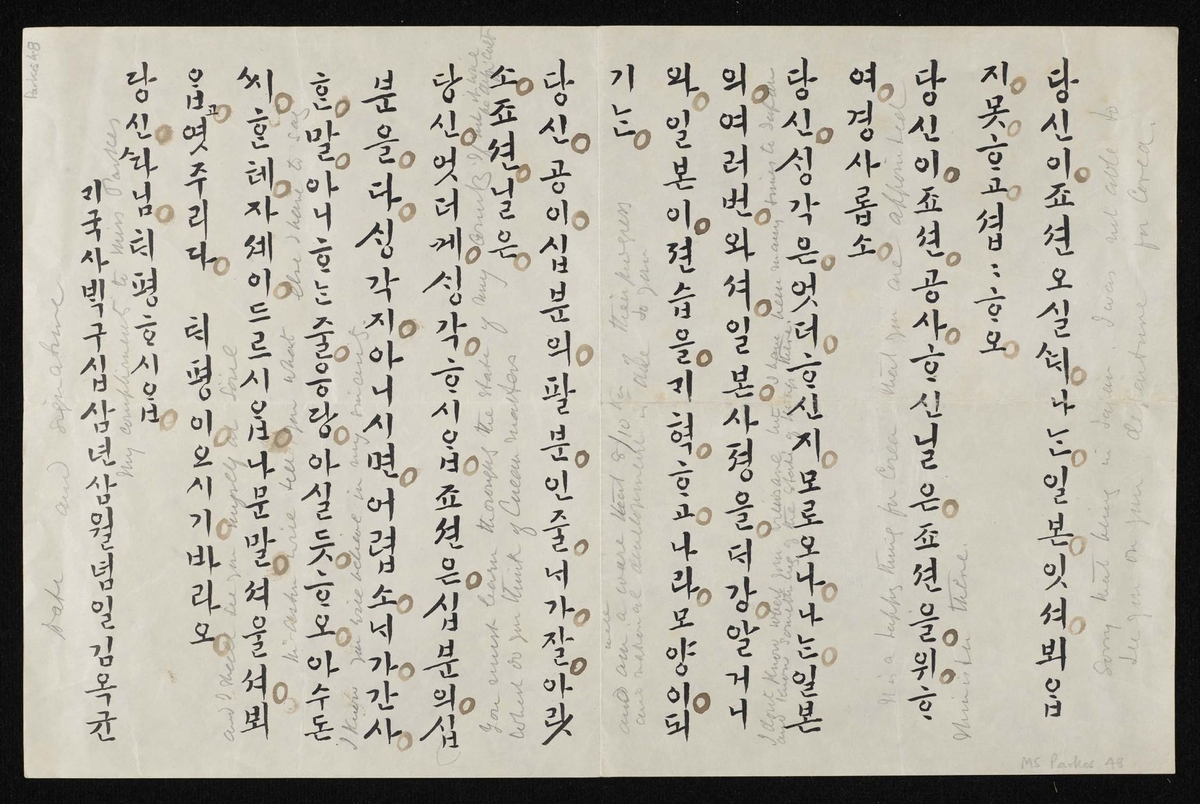 당신이죠션오실ᄯᅢ나ᄂᆞᆫ일본잇셔뵈ᄋᆞᆸ
지못ᄒᆞ고셥〻ᄒᆞ오
당신이죠션공사ᄒᆞ신닐은죠션을위ᄒᆞ
여경사롭소
당신ᄉᆡᆼ각은엇더ᄒᆞ신지모로오나나ᄂᆞᆫ일본
의여러번와셔일본사졍을ᄃᆡ강알거니
와일본이젼습을ᄀᆡ혁ᄒᆞ고나라모양이되
기ᄂᆞᆫ
당신공이십분의팔분인줄ᄂᆡ가잘아랏
소죠션닐은
당신엇더케ᄉᆡᆼ각ᄒᆞ시ᄋᆞᆸ죠션은십분의십
분을다ᄉᆡᆼ각지아니시면어렵소ᄂᆡ가간사
ᄒᆞᆫ말아니ᄒᆞᄂᆞᆫ줄응당아실듯ᄒᆞ오아수돈
씨ᄒᆞᆫ테자셰이드르시ᄋᆞᆸ나문말셔울셔뵈
ᄋᆞᆸ고엿주리다 ᄐᆡ평이오시기바라오
당신ᄯᅡ님ᄐᆡ평ᄒᆞ시ᄋᆞᆸ
ᄀᆡ국사ᄇᆡᆨ구십삼년삼월념일김옥균
Sorry that being in Japan I was not able to
see you on your departure for Corea.
It is a happy thing for Corea that you are appointed
Minister there.
and am well aware that 8/10 ths of their progress
and national development is due to you
What do you think of Corean matters
You must learn thoroughly the state of my
country
I know you will believe in my sincerity
Mr Aston will tell you what else I have to say
and I shall see you myself at Söul
My compliments to Miss Parkes
Date and signature
Parkes 48
MS Parkes 48